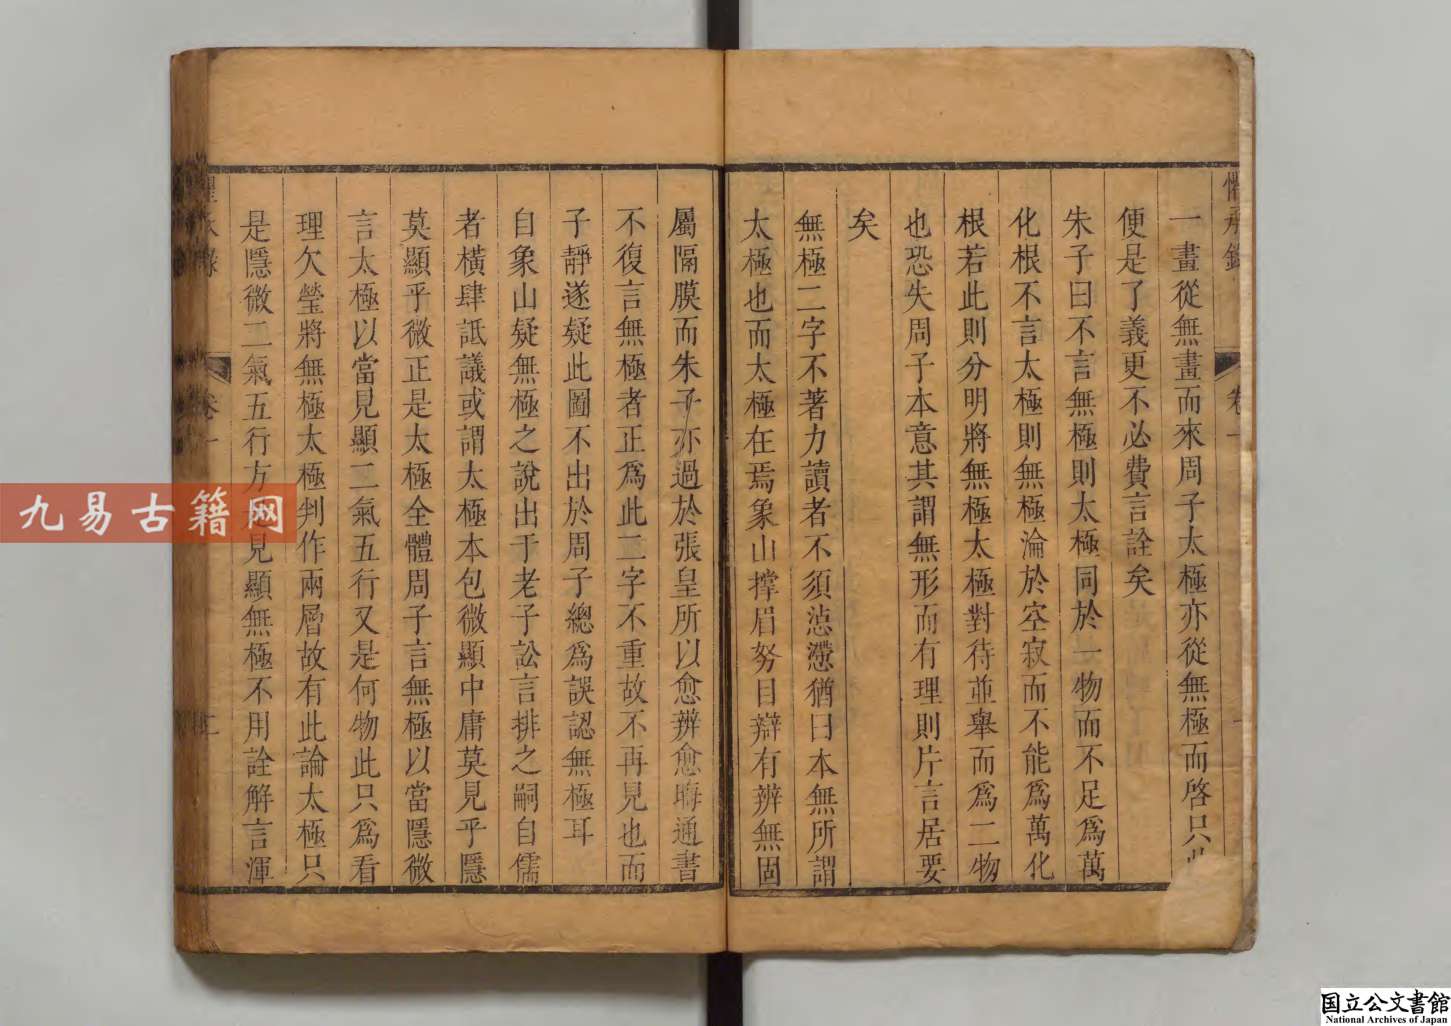 一畫從無畫而來周子太極亦從無極而啓只此
便是了義更不必費言詮矣
朱子曰不言無極則太極同於一物而不足爲萬
化根不言太極則無極淪於空寂而不能爲萬化
根若此則分明將無極太極對待並舉而爲二物
也恐失周子本意其謂無形而有理則片言居要
矣
無極二字不著力讀者不須惉懘猶曰本無所謂
太極也而太極在焉象山撑眉努目辯有辨無固
屬隔膜而朱子亦過於張皇所以愈辨愈晦通書
不復言無極者正爲此二字不重故不再見也而
子靜遂疑此圖不出於周子總爲誤認無極耳
自象山疑無極之說出于老子訟言排之嗣自儒
者橫肆詆議或謂太極本包微顯中庸莫見乎隱
莫顯乎微正是太極全體周子言無極以當隱微
言太極以當見顯二氣五行又是何物此只爲看
理欠瑩將無極太極判作兩層故有此論太極只
是隱微二氣五行方見顯無極不用詮解言渾
卷一
九易古籍网
国立公文書館
National Archives of Japan